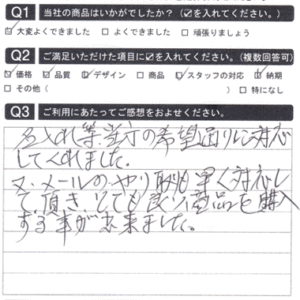 Q1 当社の商品はいかがでしたか？（☑を入れてください。）
☑大変よくできました □よくできました □頑張りましょう
Q2 ご満足いただけた項目に☑を入れてください。（複数回答可）
☑価格 ☑品質 ☑デザイン □商品 ☑スタッフの対応 ☑納期
□その他（ ）□特になし
Q3 ご利用にあたってご感想をおよせください。
名入れ等、当方の希望通りに対応
してくれました。
又、メールのやり取りも早く対応し
て頂き、とても良い商品を購入
する事が出来ました。